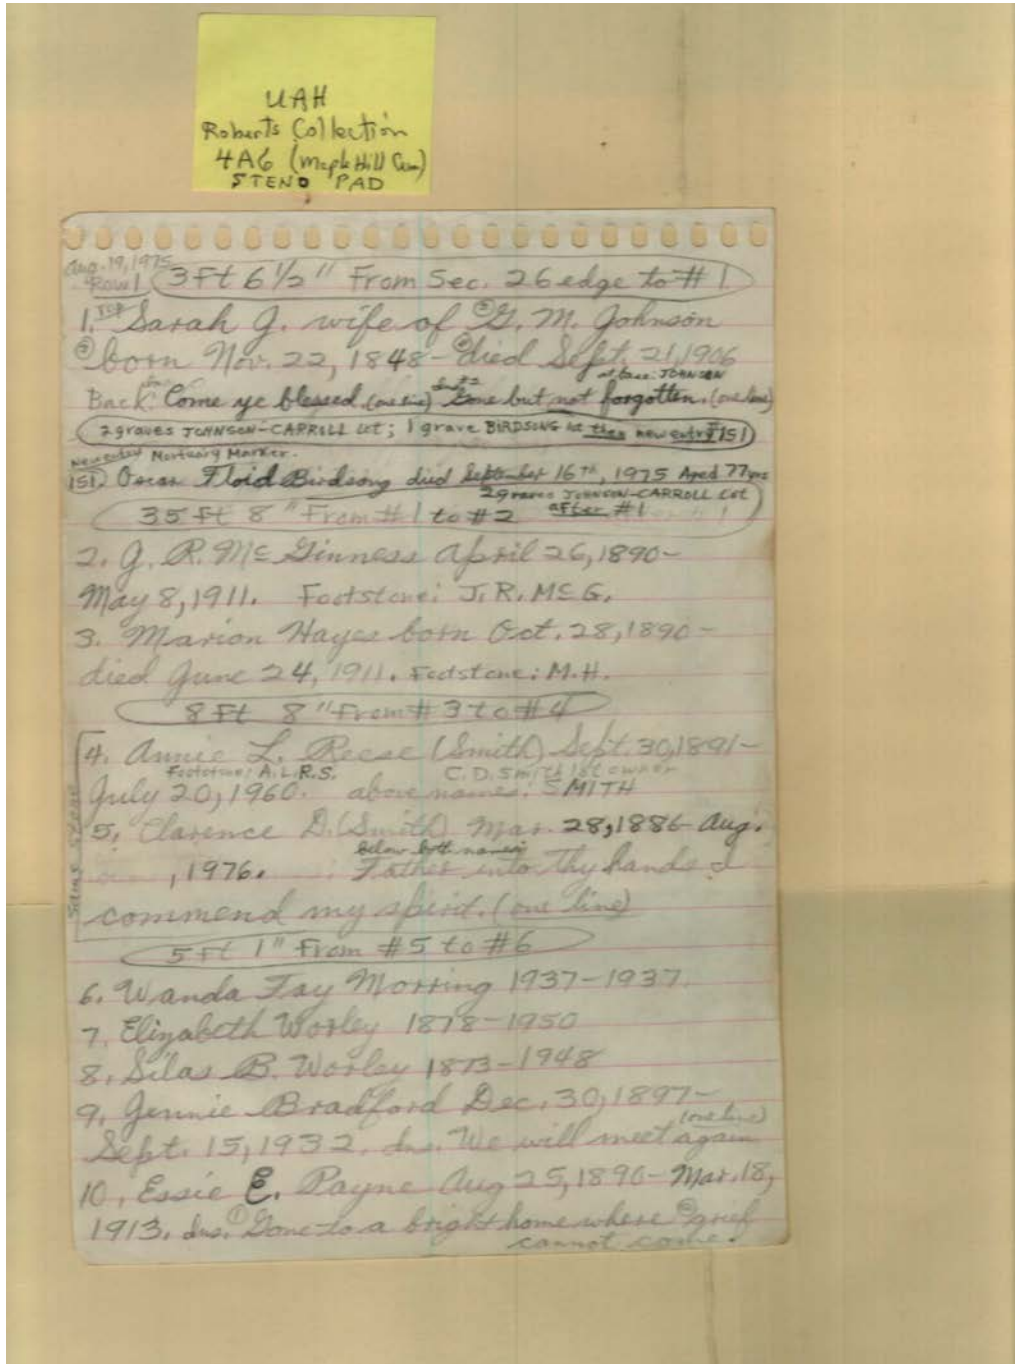 UAH
Roberts Collection
4A6 (Maple Hill Cem)
STENO PAD
Aug. 19, 1975
Row 1 3 Ft 6 1/2" From Sec. 26 edge to # 1
1. TOP Sarah J. wife of ② G. M. Johnson
③ born Nov. 22, 1848 - ④ died Sept. 21, 1906
at base: JOHNSON
Back: Come ye blessed. (one line) Gone but not forgotten. (one line)
2 graves JOHNSON-CARROLL Lot; 1 grave BIRDSONG lot then new entry #151
New entry Mortuary Marker.
151. Oscar Floid Birdsong died September 16TH, 1975 Aged 77 yrs
2 graves JOHNSON-CARROLL Lot
35 Ft 8" From # 1 to # 2 after #1
2. J. R. McGinness April 26, 1890-
May 8, 1911. Footstone: J. R. McG.
3. Marion Hayes born Oct. 28, 1890-
died June 24, 1911. Footstone: M. H.
8 Ft 8" From # 3 to # 4
4. Annie L. Reese (Smith) Sept. 30, 1891-
Footstone: A.L.R.S. C. D. Smith lot owner
July 20, 1960. above names: SMITH
5. Clarence D. (Smith) Mar. 28, 1886- Aug.
below both names:
, 1976. Father into Thy hands I
Same stone
commend my spirit. (one line)
5 Ft 1" From # 5 to # 6
6. Wanda Fay Morring 1937-1937.
7. Elizabeth Worley 1878-1950
8. Silas B. Worley 1873-1948
9. Jennie Bradford Dec. 30, 1897-
(one line)
Sept. 15, 1932. Ins. We will meet again
10. Essie E. Payne Aug 25, 1890- Mar. 18,
1913. Ins. ① Gone to a bright home where ② grief
cannot come.